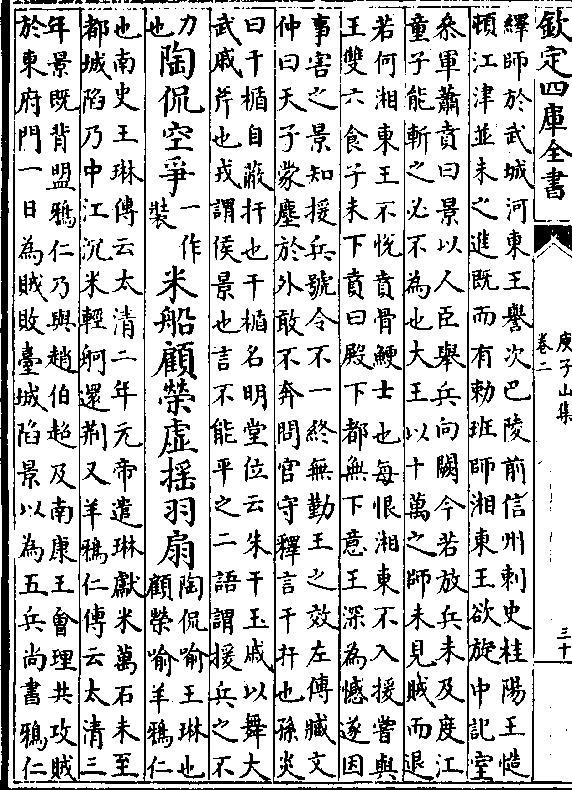 欽定四庫全書
庾子山集
卷二
三十
繹師於武城河東王譽次巴陵前信州刺史桂陽王慥
頓江津並未之進既而有勅班師湘東王欲旋中記室
叅軍蕭賁曰景以人臣舉兵向闕今若放兵未及度江
童子能斬之必不為也大王以十萬之師未見賊而退
若何湘東王不悦賁骨鯁士也每恨湘東不入援嘗與
王雙六食子未下賁曰殿下都無下意王深為憾遂因
事害之景知援兵號令不一終無勤王之效左傳臧文
仲曰天子蒙塵於外敢不奔問官守釋言干扞也孫炎
曰干楯自蔽扞也干楯名明堂位云朱干玉戚以舞大
武戚斧也戎謂侯景也言不能平之二語謂援兵之不
力
也
陶侃空爭
一作
裝
米船顧榮虚揺羽扇
陶侃喻王琳也
顧榮喻羊鴉仁
也南史王琳傳云太清二年元帝遣琳獻米萬石未至
都城陷乃中江沉米輕舸還荆又羊鴉仁傳云太清三
年景既背盟鴉仁乃與趙伯超及南康王會理共攻賊
於東府門一日為賊敗臺城陷景以為五兵尚書鴉仁